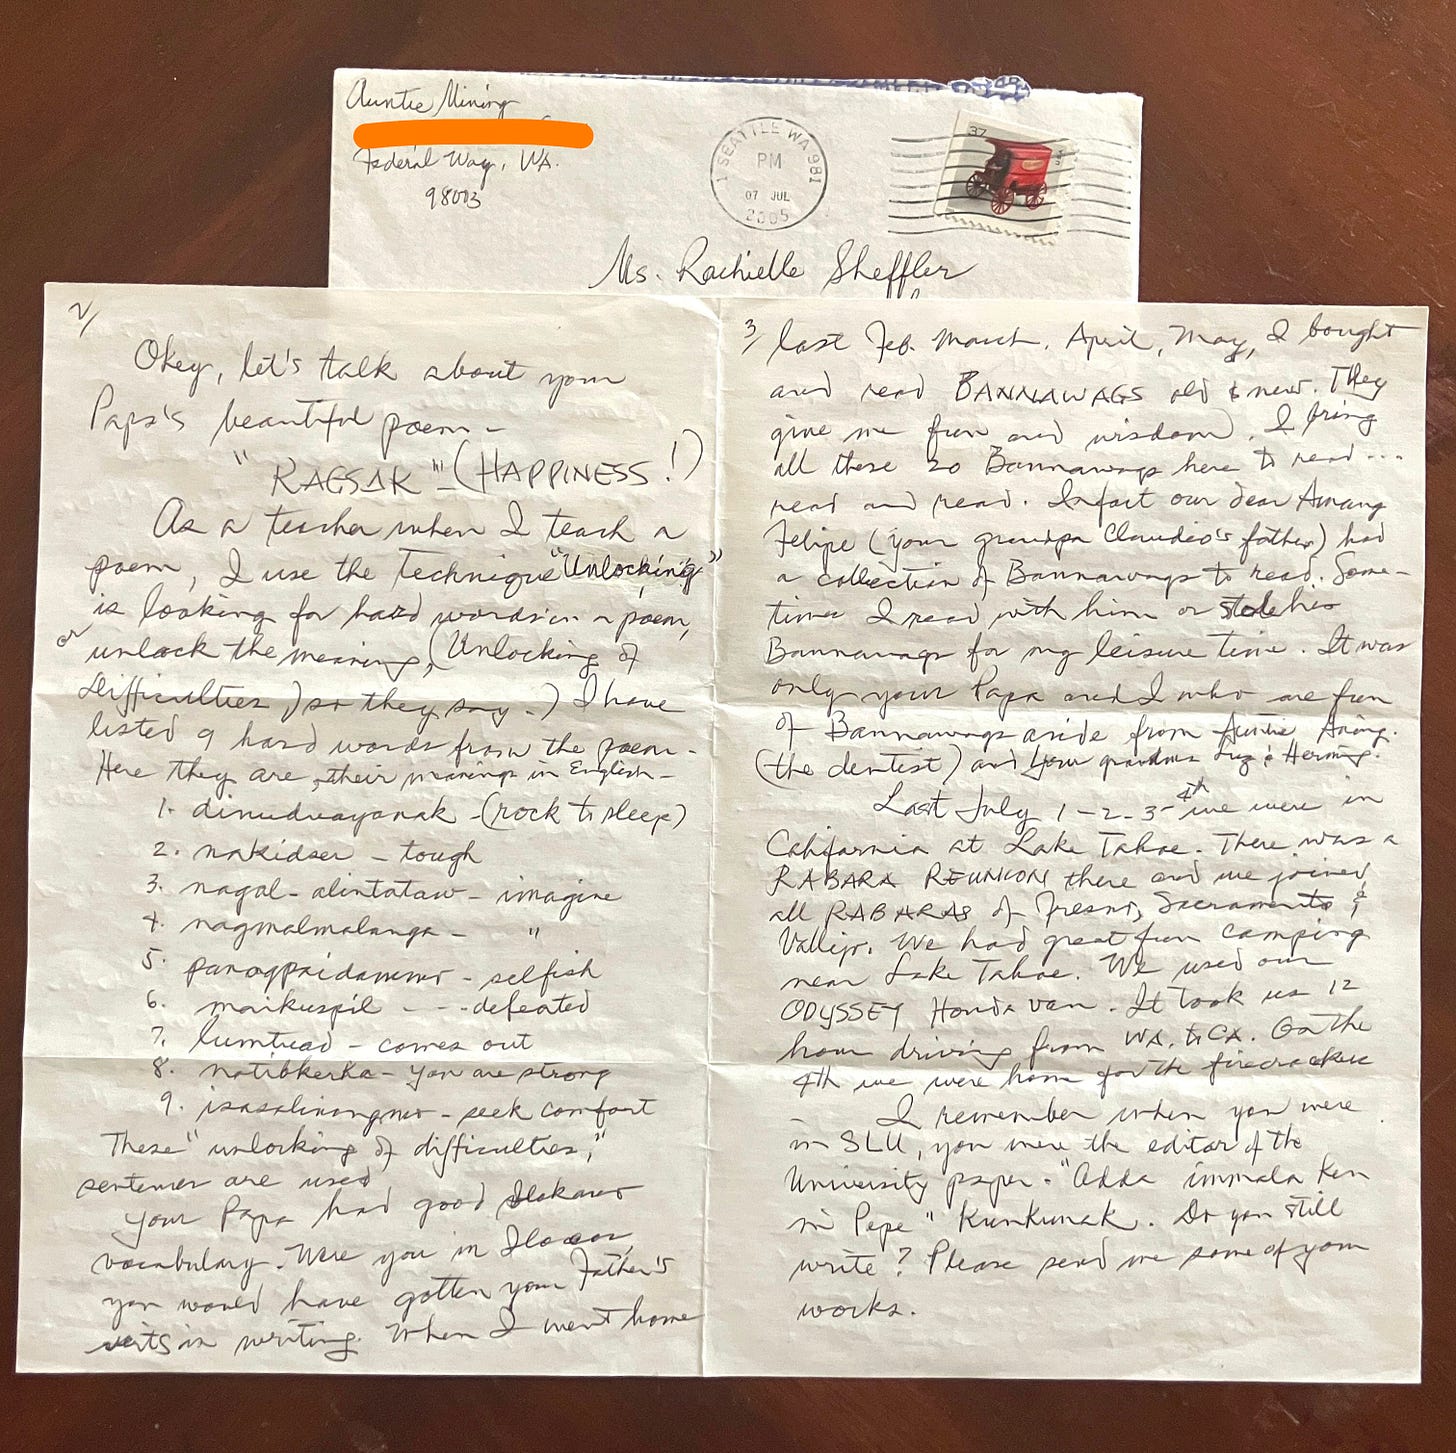 Auntie Mining
Federal Way, WA.
98003
SEATTLE WA 981
PM
07 JUL
2005
37
Ms. Rachielle Sheffler
2/
Okey, let's talk about your
Papa's beautiful poem -
"RAGSAK" - (HAPPINESS!)
As a teacher when I teach a
poem, I use the Technique "Unlocking"
is looking for hard words in a poem,
or unlock the meaning, (Unlocking of
Difficulties) so they say.) I have
listed 9 hard words from the poem -
Here they are, their meanings in English -
1. dinudwayanak - (rock to sleep)
2. nakidser - tough
3. nagal-alintataw - imagine
4. nagmalmalanga - "
5. panagpaidammo - selfish
6. maikuspil - - - defeated
7. lumtuad - comes out
8. natibkerka - you are strong
9. isasalinongmo - seek comfort
These "unlocking of difficulties,"
sentences are used
Your Papa had good Ilokano
vocabulary. Were you in Ilocos,
you would have gotten your Father's
in writing. When I went home
3/ last Feb. March, April, May, I bought
and read BANNAWAGS old & new. They
give me fun and wisdom. I bring
all these 20 Bannawags here to read ...
read and read. Infact our dear Amang
Felipe (your grandpa Claudio's father) had
a collection of Bannawags to read. Some-
times I read with him or stole his
Bannawags for my leisure time. It was
only your Papa and I who are fun
of Bannawags aside from Auntie Aning.
(the dentist) and your grandma Luz & Herming.
Last July 1-2-3-4th we were in
California at Lake Tahoe. There was a
RABARA REUNION there and we joined
all RABARAS of Fresno, Sacramento &
Vallejo. We had great fun camping
near Lake Tahoe. We used our
ODYSSEY Honda van. It took us 12
hour driving from WA. to CA. On the
4th we were home for the firecracker
- I remember when you were
in SLU, you were the editor of the
University paper. "Adda immala ken
ni Pepe" Kunkunak. Do you still
write? Please send me some of your
works.